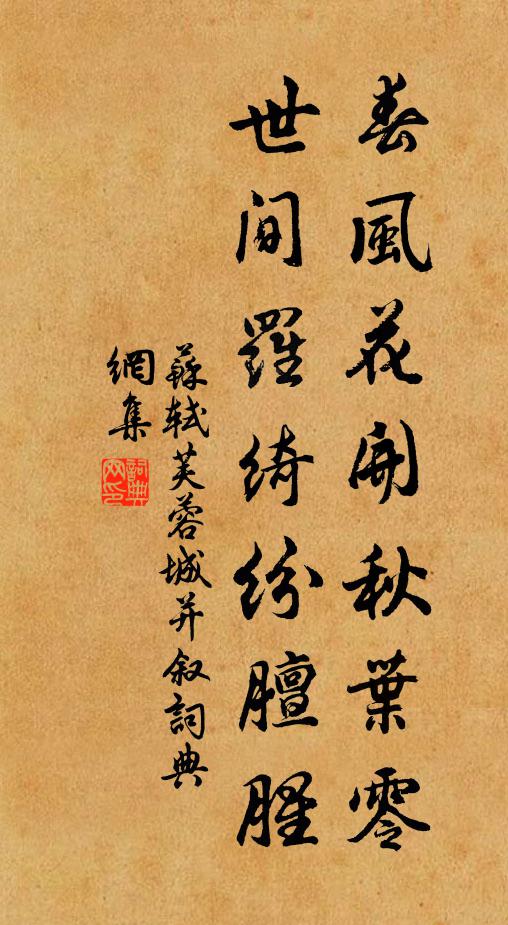 春風花開秋葉零
世間羅綺紛膻腥
蘇軾芙蓉城并叙詞典
網集
詞典
网印